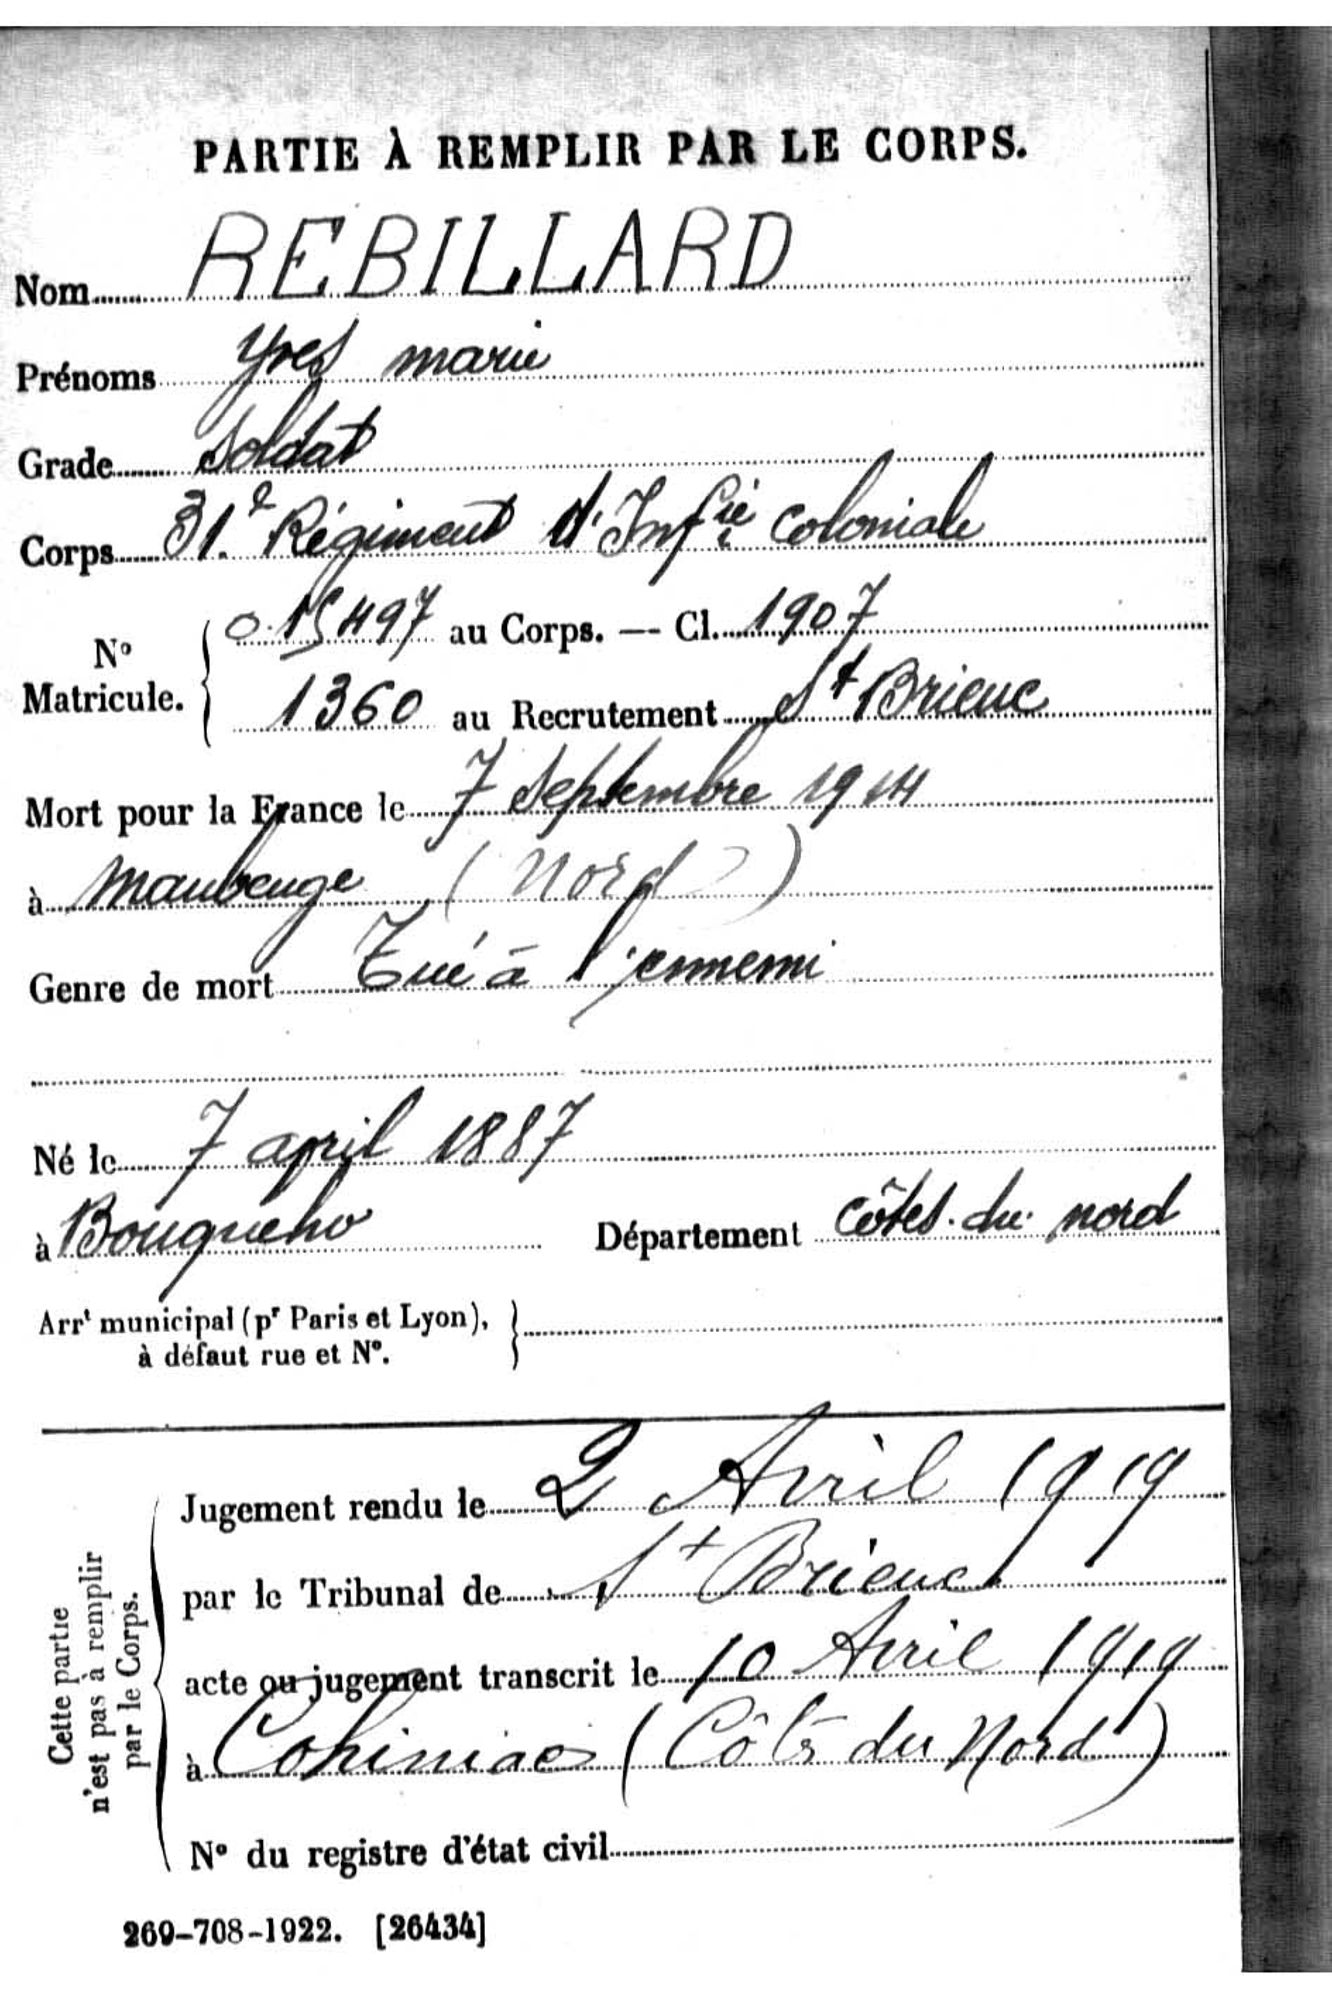 PARTIE À REMPLIR PAR LE CORPS.
Nom REBILLARD
Prénoms Yves marie
Grade Soldat
Corps 31.e Régiment d'Infie coloniale
No Matricule. { 0.15497 au Corps. — Cl. 1907
1360 au Recrutement St Brieuc
Mort pour la France le 7 Septembre 1914
à Maubeuge (Nord)
Genre de mort Tué à l'ennemi
Né le 7 april 1887
à Bouqueho Département côtes.du.nord
Arrt municipal (pr Paris et Lyon),
à défaut rue et No.
Cette partie
n'est pas à remplir
par le Corps.
Jugement rendu le 2 Avril 1919
par le Tribunal de St Brieuc
acte ou jugement transcrit le 10 Avril 1919
à Cohiniac (Côtes du Nord)
No du registre d'état civil
269-708-1922. [26434]